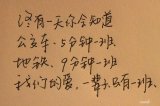 终有一天你会知道
公交车,5分钟一班
地铁,9分钟一班
我们的爱,一辈子只有一班.